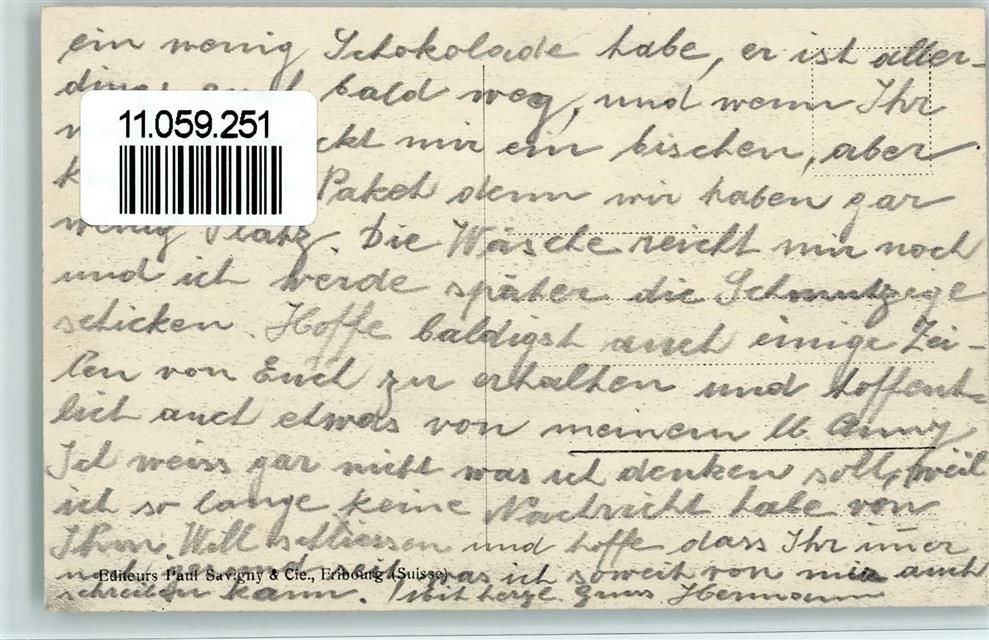 ein wenig Schokolade habe, er ist aller-
bald weg, und wenn Ihr
11.059.251
mir ein bischen, aber
Paket denn wir haben gar
wenig Platz. Die Wäsche reicht mir noch
und ich werde später die Schmutzege
schicken. Hoffe baldigst auch einige Zei-
len von Euch zu erhalten und hoffent-
lich auch etwas von meinem lb. Anny
Ich weiss gar nicht was ich denken soll, weil
ich so lange keine Nachricht habe von
Ihm. Will schliessen und hoffe dass Ihr imer
was ich soweit von mir auch
Editeurs Paul Savigny & Cie., Fribourg (Suisse)
schreiben kann. Mit herzl. Gruss Hermann